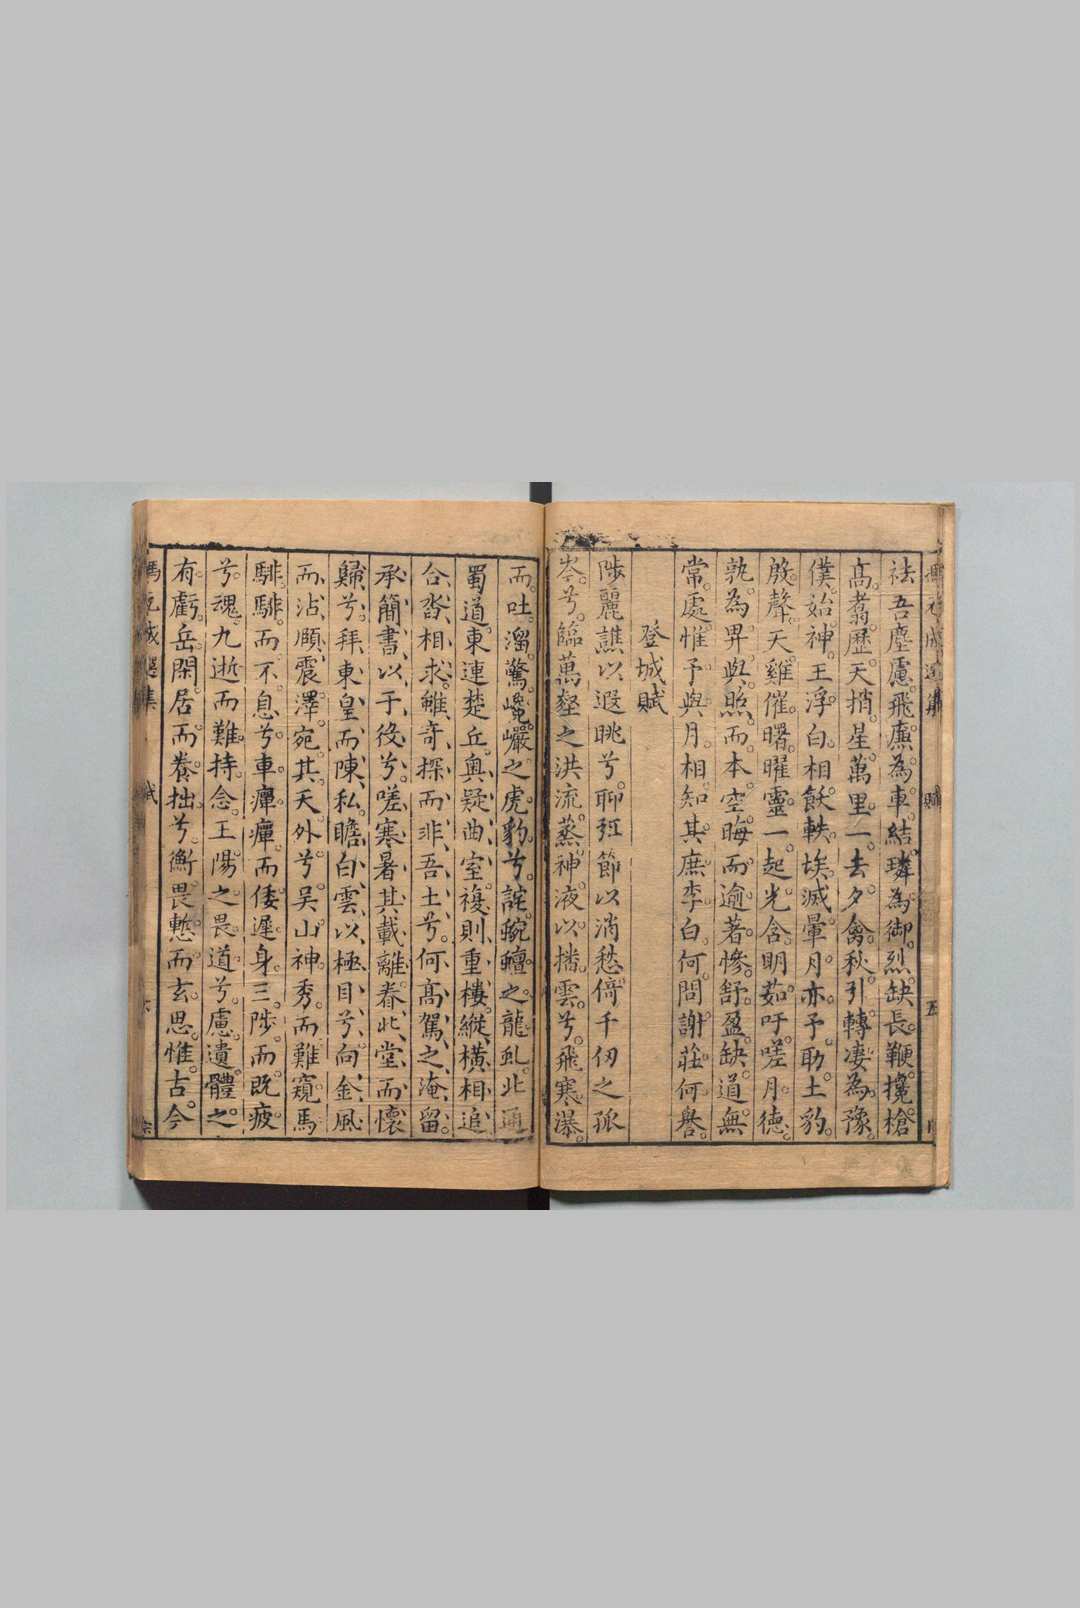 祛吾塵慮飛廉為車結璘為御烈缺長鞭攙槍
高翥歷天捎星萬里一去夕禽秋引轉凄為豫
僕始神王浮白相飫軼埃滅暈月亦予助土豹
殷聲天雞催曙曜靈一起光含明茹吁嗟月德
孰為畀與照而本空晦而逾著慘舒盈缺道無
常處惟予與月相知其庶李白何問謝莊何譽
登城賦
陟麗譙以遐眺兮聊弭節以消愁倚千仞之孤
岑兮臨萬壑之洪流蒸神液以播雲兮飛寒瀑
而吐溜驚巉巖之虎豹兮詫蜿蟺之龍虬北通
蜀道東連楚丘奥疑曲室複則重樓縱橫相追
合沓相求雖奇探而非吾土兮何高駕之淹留
承簡書以于役兮嗟寒暑其載離眷北堂而懷
歸兮拜東皇而陳私瞻白雲以極目兮向金風
而沾頤震澤宛其天外兮吳山神秀而難窺馬
騑騑而不息兮車癉癉而倭遲身三陟而既疲
兮魂九逝而難持念王陽之畏道兮慮遺體之
有虧岳閑居而養拙兮衡畏愸而玄思惟古今
馮元成選集 賦 六